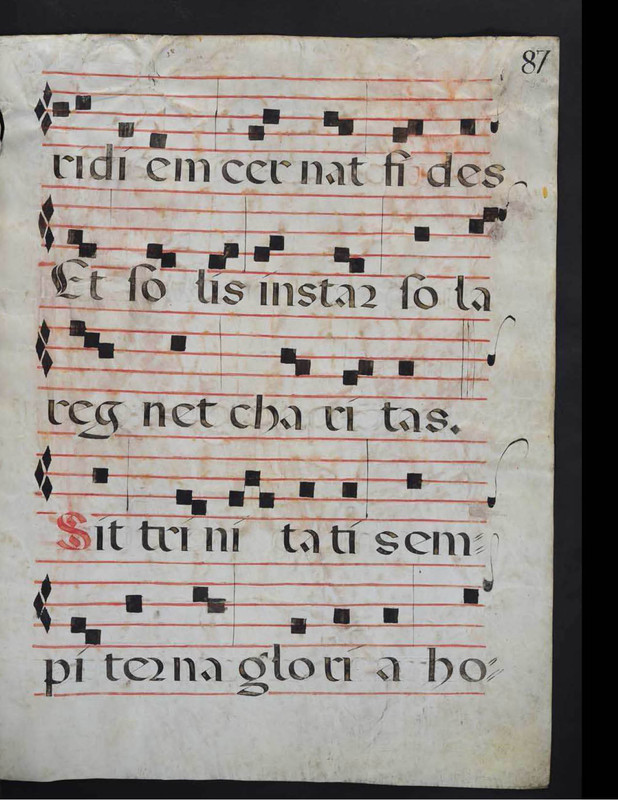 87
ridi em cer nat fi des
Et so lis instar so la
reg net cha ri tas.
Sit tri ni tati sem=
pi terna glori a ho=